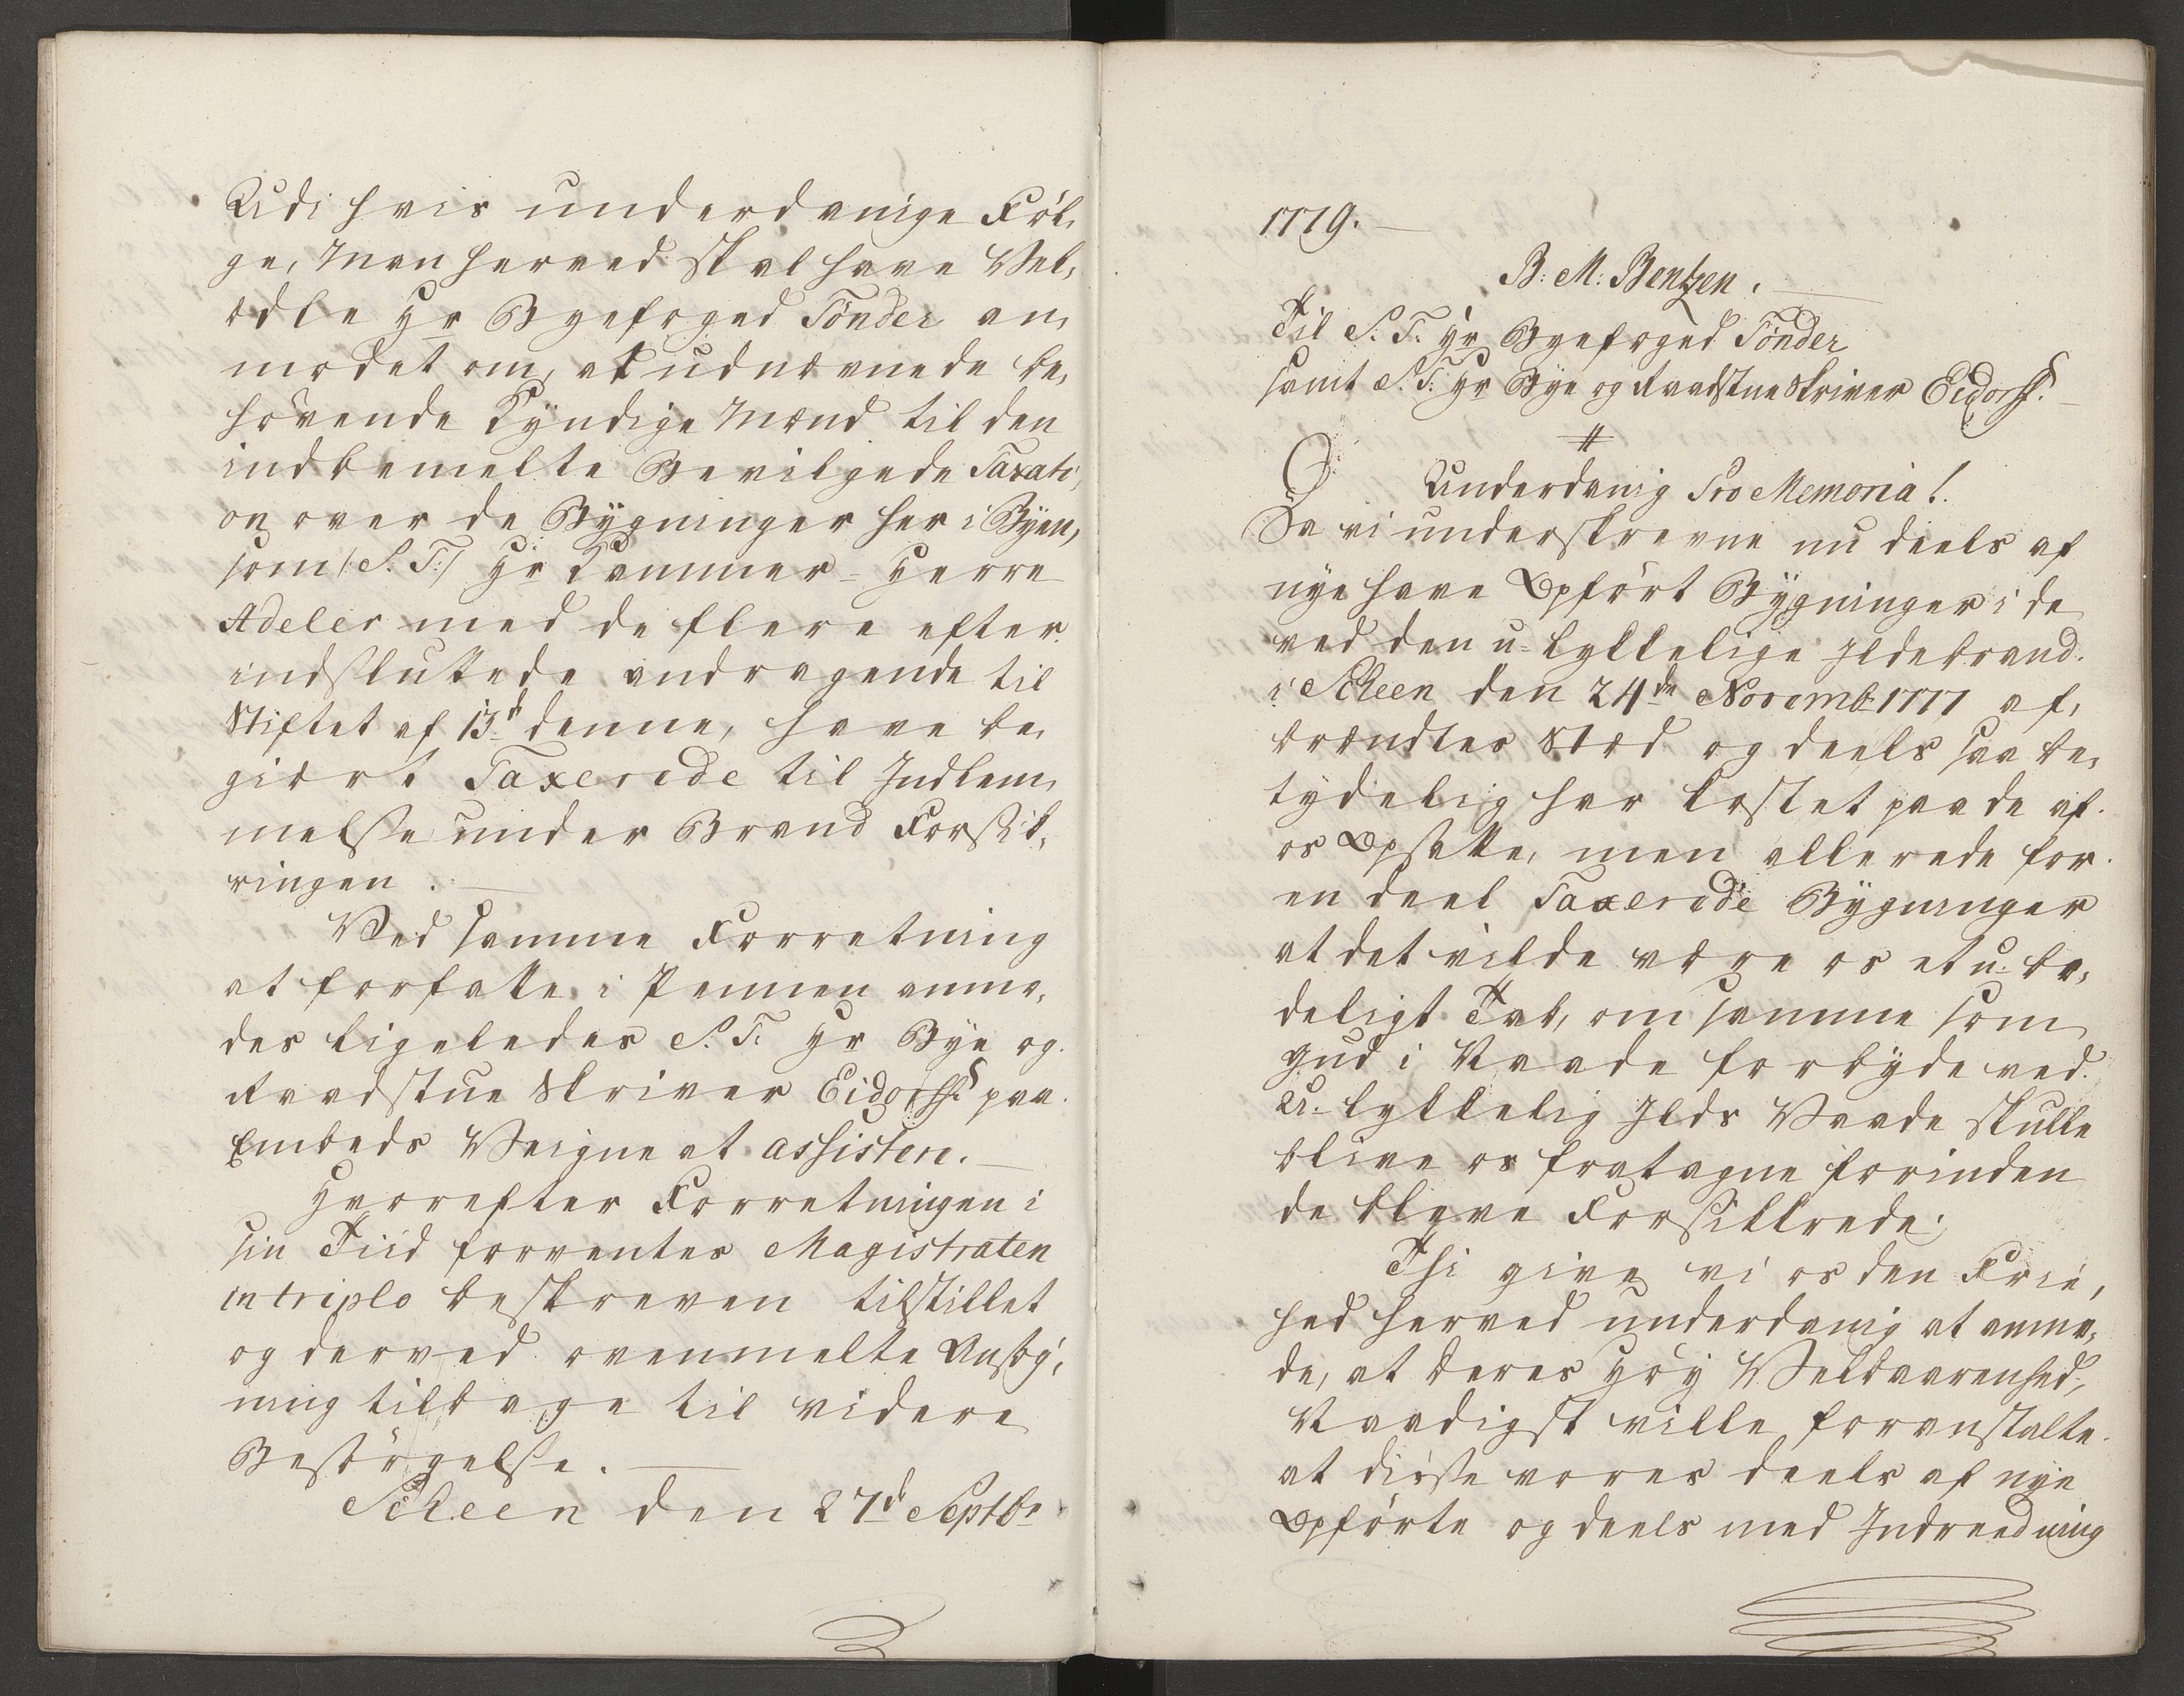 Udi hvis underdanige Föl,
ge, Man herved skal have Vel,
ædle Hr Byefoged Tönder an,
modet om, at udnævnede be,
hövende Kyndige Mænd til den
indbemelte Bevilgede Taxati,
on over de Bÿgninger her i Bÿen,
som /:S. T:/ Hr Kammer-Herre
Adeler med de flere efter
indsluttede andragende til
Stiftet af 13d denne, have be,
giært Taxerede til Indlem,
melse under Brand Forsik,
ringen.
Ved samme Forretning
at forfatte i Pennen anmo,
des ligeledes S. T. Hr Bÿe og
Raadstue Skriver Eidorff paa
Embeds Veigne at assistere.
Hvorefter Forretningen i
sin Tiid forventes Magistraten
in triplo beskreven tilstillet
og derved ovenmelte Ansög,
ning tilbage til videre
Besörgelse.
Scheen den 27d Septbr
1779.
B: M: Bentzen.
Til S. T. Hr Byefoged Tönder
samt S. T. Hr Bÿe og Raadstue Skriver Eidorff.
#
Underdanig Pro Memoria!
Da vi underskrevne nu deels af
nÿe have Opfört Bÿgninger i de
ved den u-lykkelige Ildebrand
i Scheen den 24de Novemb: 1777 af,
brændtes Stæd og deels saa be,
tydelig har kostet paa de af
os Opsatte, men allerede for
en deel Taxerede Bÿgninger
at det vilde være os et u-bo,
deligt Tab, om samme som
Gud i Naade forbÿde ved
U-lykkelig Ilds Vaade skulle
blive os fratagne forinden
de bleve Forsikkrede;
Thi give vi os den Frie,
hed herved underdanig at anmo,
de, at Deres Höÿ Velbaarenhed,
Naadigst ville foranstalte
at disse vores deels af nÿe
Opförte og deels med Indreedning